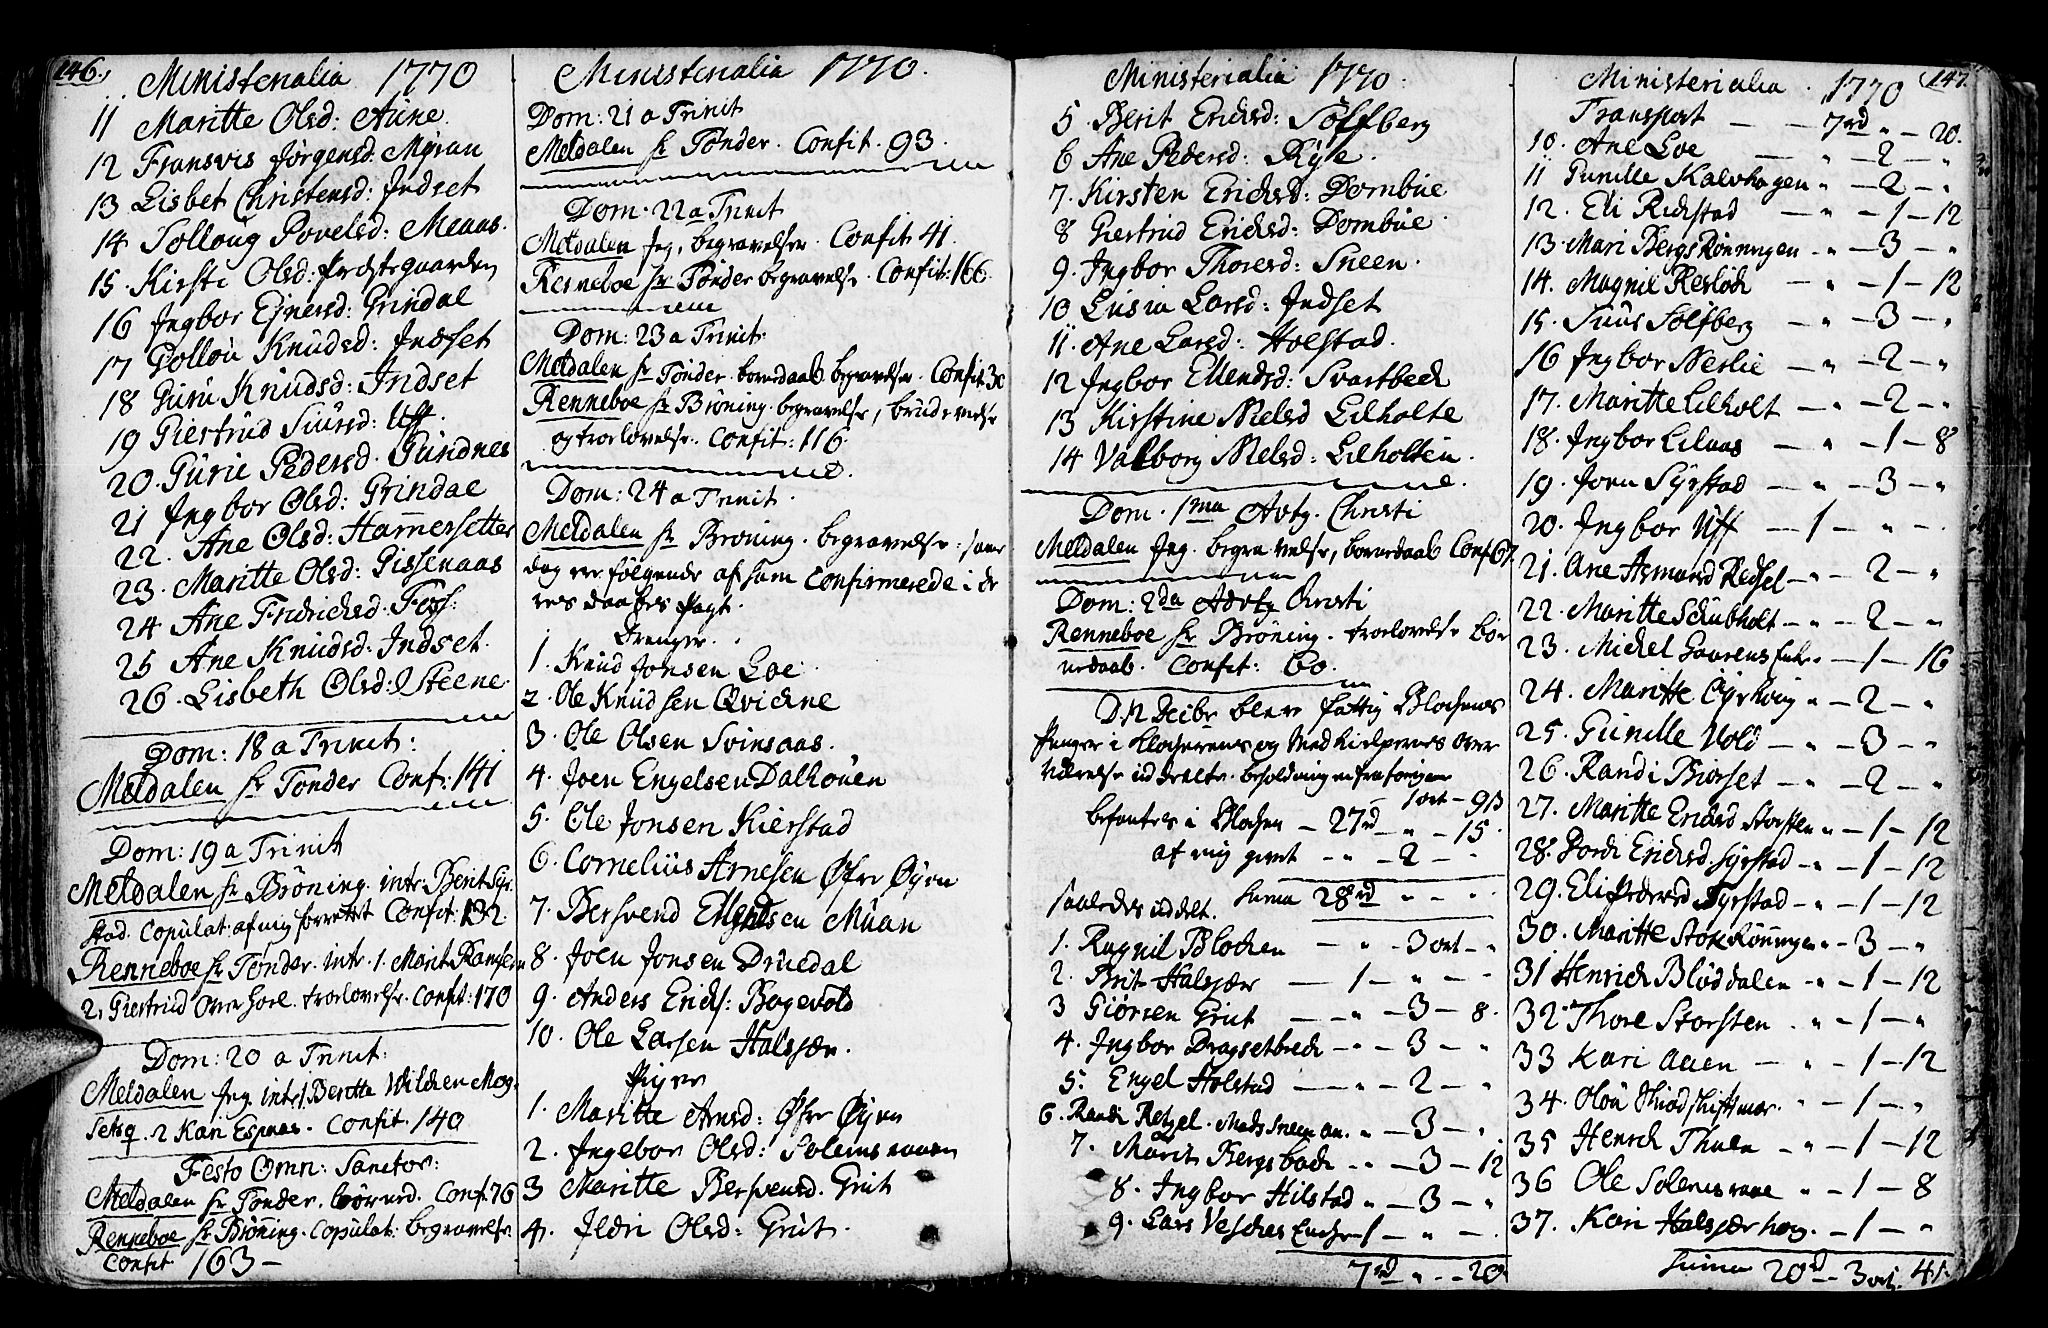 146.
Ministerialia 1770
11 Maritte Olsd: Aune
12 Fransvis Jørgensd. Myran
13 Lisbet Christensd: Indset
14 Solloug Povelsd: Meaas.
15. Kirsti Olsd: Præstegaarden
16 Ingbor Ejnersd: Grindal
17 Gollou Knudsd: Indset
18 Guru Knudsd: Indset
19 Giertrud Siursd: Uff.
20. Gurie Pedersd. Gundnes
21 Ingbor Olsd: Grindal
22. Ane Olsd: Hamersetter
23. Maritte Olsd: Gissenaas
24 Ane Fridrichsd. Foss:
25 Ane Knudsd: Indset.
26. Lisbeth Olsd: Steene
Dom: 18 a Trinit:
Meldalen Hr Tønder Conf: 141
Dom: 19 a Trinit
Meldalen Hr Brøning. intr: Berit Syr-
stad. Copulat. af mig forrettet Confit: 132
Renneboe Hr Tønder. intr. 1. Marit Ramsem
2, Giertrud Overhoel. troelovelse. Confit: 170
Dom: 20 a Trinit:
Meldalen Jeg. intr 1. Beratte Wilchen Mog-
Sets q. 2 Kari Espaas. Confit. 140
Festo Omn: Sanctor:
Meldalen Hr Tønder. Børned. Conf. 76
Renneboe Hr Brøning. Copulat: begravelse.
Confit 163 —
Ministerialia 1770.
Dom: 21 a Trinit
Meldalen Hr Tønder. Confit. 93.
Dom. 22 a Trinit
Meldalen Jeg, begravelse. Confit 41.
Renneboe Hr Tønder begravelse. Confit: 166
Dom: 23 a Trinit.
Meldalen Hr Tønder. borndaab begravelse. Confit 30
Renneboe Hr Brøning. begravelse, brudevielse
og troelovelse. Confit: 116.
Dom: 24 a Trinit.
Meldalen Hr Brøning. begravelse. samme
dag ere følgende af ham Confirmerede i de
res daabes pagt.
Drenge.
1. Knud Jonsen Loe.
2. Ole Knudsen Qvickne
3. Ole Olsen Svinsaas.
4. Joen Engelsen Dalhouen
5. Ole Jonsen Kierstad
6. Cornelius Arnesen Øfre Øyen
7. Bersvend Ellendsen Muan
8. Joen Jonsen Druedal
9. Anders Erichs: Bogevold
10. Ole Larsen Halsjær.
Piger
1. Maritte Arnsd: Øfre Øyen
2. Ingebor Olsd: Solemsvaaen
3 Maritte Bersvensd. Grut
4. Ildri Olsd: Grut.
Ministerialia 1770.
5. Berit Erichsd: Solfberg
6 Ane Pedersd: Ryse.
7. Kirsten Erichsd: Dombue
8 Giertrud Erichsd: Dombue
9. Ingbor Thoresd: Sneen.
10 Lusia Larsd: Indset
11. Ane Larsd: Holstad.
12 Ingbor Ellendsd: Svartbeck
13 Kirstine Nielsd Lilholte
14 Valborg Nielsd: Lilholten.
Dom. 1ma Advtg. Christi
Meldalen Jeg. begravelse, borndaab Conf. 67
Dom: 2da Advtg Christi
Renneboe Hr Brøning. troelovelse bør
nedaab. Confit: 60.
D. 12 Decibr bleve fattig Blochenes
Penger i Klocherens og Medhielpernes over
værelse uddeelte. beholdningen fra forige
1 ort — 9 ß
befantes i Blochen — 27 rd " — 15.
af mig givet " — 2 — "
saaledes uddelt. Suma 28 rd " "
1. Ragnil Blochen — " — 3 ort — "
2. Brit Halsjær — 1 — " — "
3 Giørsen Grut — " — 3 — 8.
4. Ingbor Dragsetbech — " — 3 — "
5. Engel Holstad — " — 2 — "
6. Randi Retzel. Mads Sneen an. " — 3 — "
7. Marit Bergsbach " — 3 — 12
8. Ingbor Hilstad " — 3 — "
9. Lars Vesches Enche 1 — " — "
7 rd " — 20.
Ministerialia. 1770
147.
Transport — 7 rd " — 20.
10. Ane Loe — " — 2 — "
11 Gunille Kalvhagen " — 2 — "
12. Eli Richstad — " — 1 — 12
13. Mari Bergs Rønningen — " — 3 — "
14. Magnil Resløck — " — 1 — 12
15. Siurs Solfberg — " — 3 — "
16 Ingbor Neslie — " — 2 — "
17. Maritte Lilholt — " — 2 — "
18. Ingbor Lilaas — " — 1 — 8
19. Joen Syrstad — " — 3 — "
20. Ingbor Uff — 1 — " — "
21. Ane Asmundsd Redsel — " — 2 — "
22. Maritte Skubholt — " — 2 — "
23. Michel Laurens Enke " — 1 — 16
24. Maritte Øyrhoug " — 2 — "
25. Gunille Vold — " — 3 — "
26. Randi Biorset — " — 2 — "
27. Maritte Erichsd Storsteen " — 1 — 12
28. Gordi Erichsd. Syrstad — " — 1 — 12
29. Eli Pedersd Syrstad — " — 1 — 12
30. Maritte Stok Rønningen " — 3 — "
31 Henrich Bløddalen — " — 1 — 12
32 Thore Storsten . " — 1 — "
33 Kari Aaen — " — 1 — 12
34. Olou Skiødskiftmoe. " — 1 — "
35 Henrich Thuen " — 1 — 12
36 Ole Solemsvaae " — 1 — 8
37. Kari Halsjærhoug. — 1 — "
Suma 20 rd — 3 ort. 4 ß.